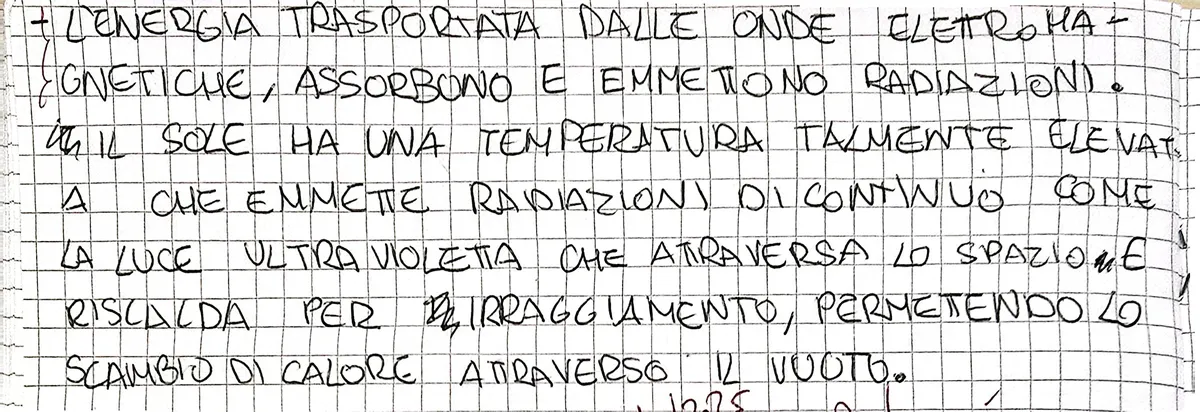 L'ENERGIA TRASPORTATA DALLE ONDE ELETTROMA-
GNETICHE, ASSORBONO E EMMETTONO RADIAZIONI.
IL SOLE HA UNA TEMPERATURA TALMENTE ELEVAT
A CHE EMMETTE RADIAZIONI DI CONTINUO COME
LA LUCE ULTRAVIOLETTA CHE ATTRAVERSA LO SPAZIO E
RISCALDA PER IRRAGGIAMENTO, PERMETTENDO LO
SCAMBIO DI CALORE ATTRAVERSO IL VUOTO.